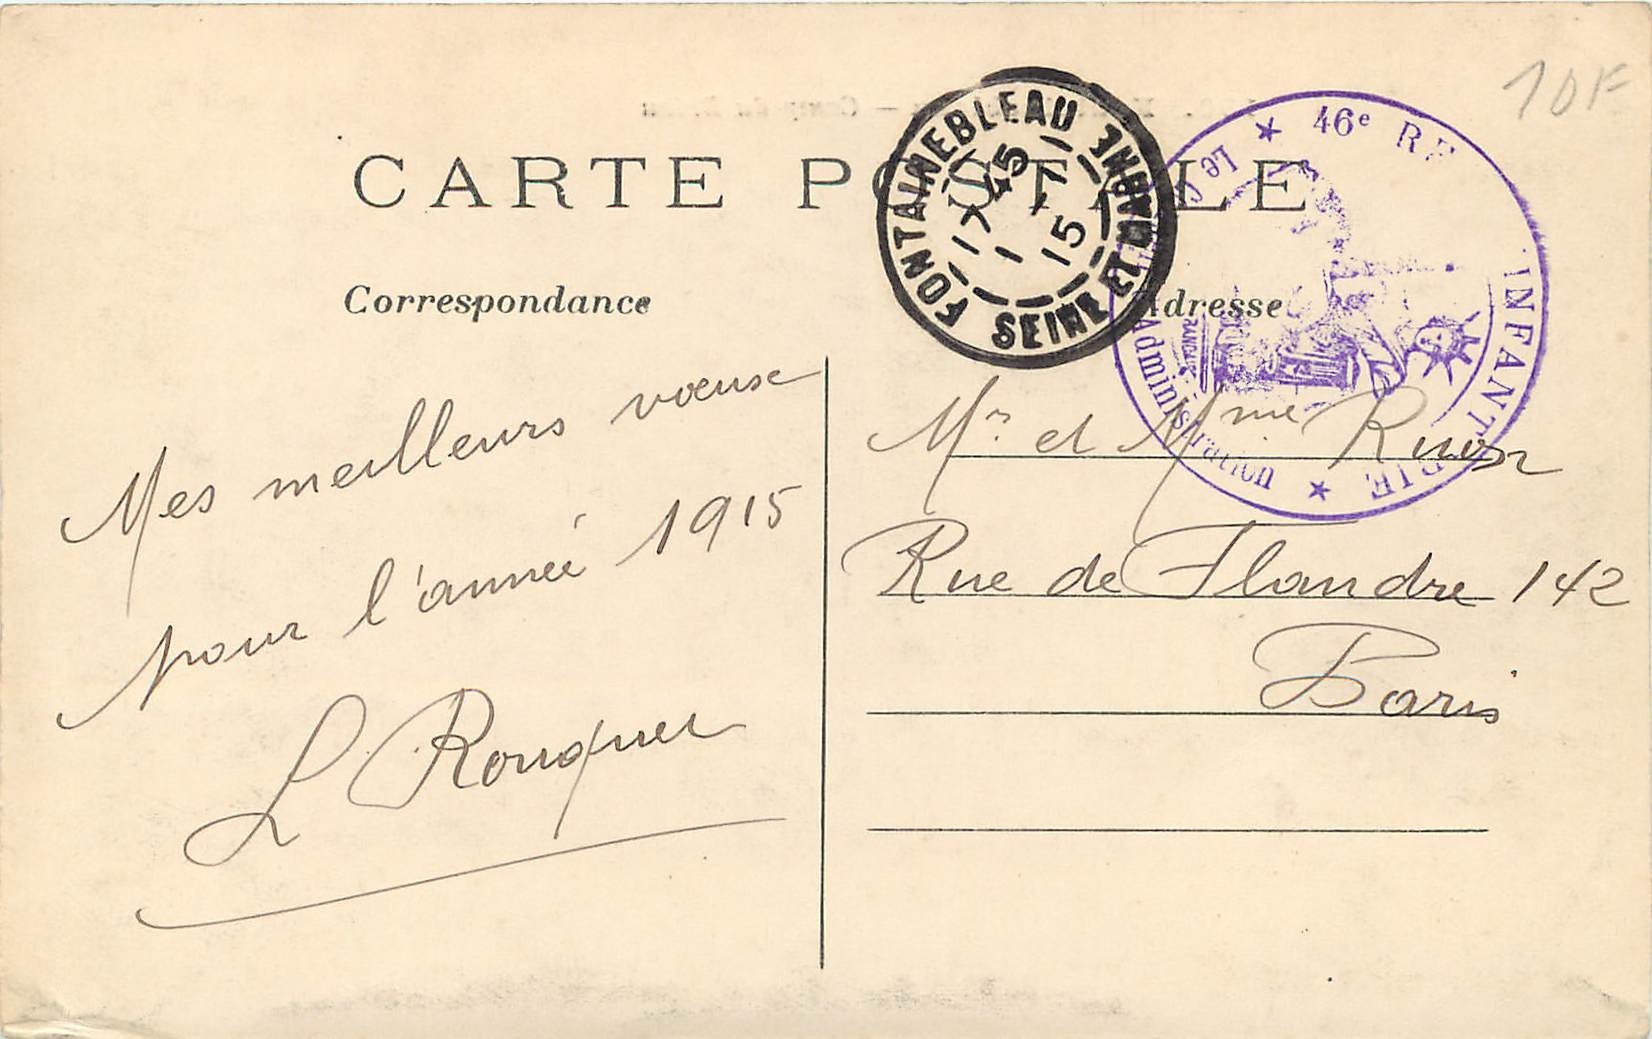 10F
CARTE POSTALE
FONTAINEBLEAU
SEINE ET MARNE
17 45
1 - 1
15
★ 46e RE INFANTERIE ★
Le
Administration
Correspondance
Adresse
Mes meilleurs vœux
pour l'année 1915
L Rouquet
Mr et Mme
Rue de Flandre 142
Paris